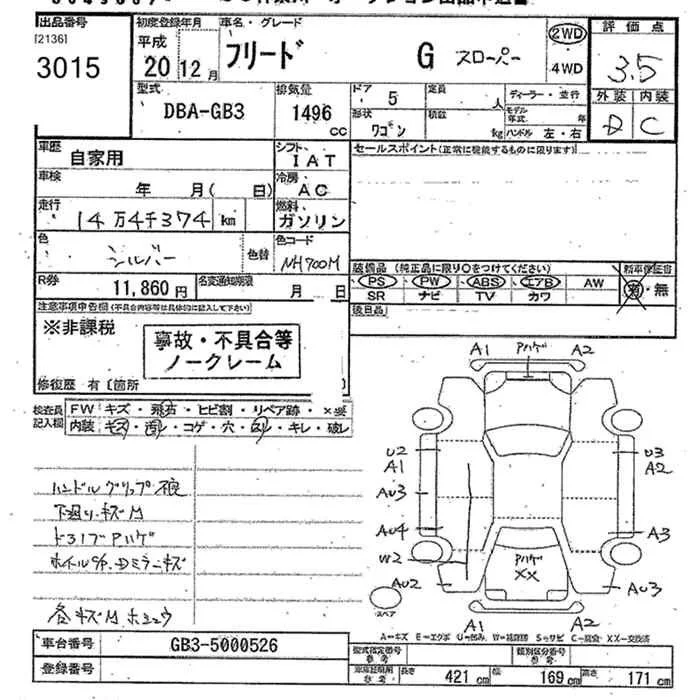 出品番号
[2136]
3015
初度登録年月
平成
20 12 月
車名・グレード
フリード G スローパー
2WD
4WD
評価点
3.5
外装 内装
D C
型式
DBA-GB3
排気量
1496
cc
ドア 5
形状 ワゴン
定員 人
積載 kg
ディーラー・並行
モデル年式 年
ハンドル 左・右
車歴
自家用
シフト
IAT
セールスポイント(正常に機能するものに限ります)
車検
年 月( 日)
冷房
AC
走行
14万4千374 km
燃料
ガソリン
色
シルバー
色替
色コード
NH700M
R券
11,860 円
名変通知期限
月 日
装備品 (純正品に限り○をつけてください)
PS PW ABS エアB AW
SR ナビ TV カワ
新車保証書
有・無
後日品
注意事項申告欄(不具合内容等は具体的に記入して下さい)
※非課税
事故・不具合等
ノークレーム
修復歴 有〔箇所
検査員
記入欄
FW キズ・飛石・ヒビ割・リペア跡・×要
内装 キズ・汚レ・コゲ・穴・スレ・キレ・破レ
下廻り・キズM
ドコノブPハゲ
各キズM ホシュウ
A1 Pハゲ A2
U2
A1
AU3
AU4
W2
AU2
U3
A2
A3
AU3
Pハゲ
XX
A1 A2
スペア
A=キズ E=エクボ U=凹み W=補修跡 S=サビ C=腐食 XX=交換済
車台番号
GB3-5000526
登録番号
型式指定番号
参考
類別区分番号
参考
車庫証明用
参考
長さ 421 cm 幅 169 cm 高さ 171 cm